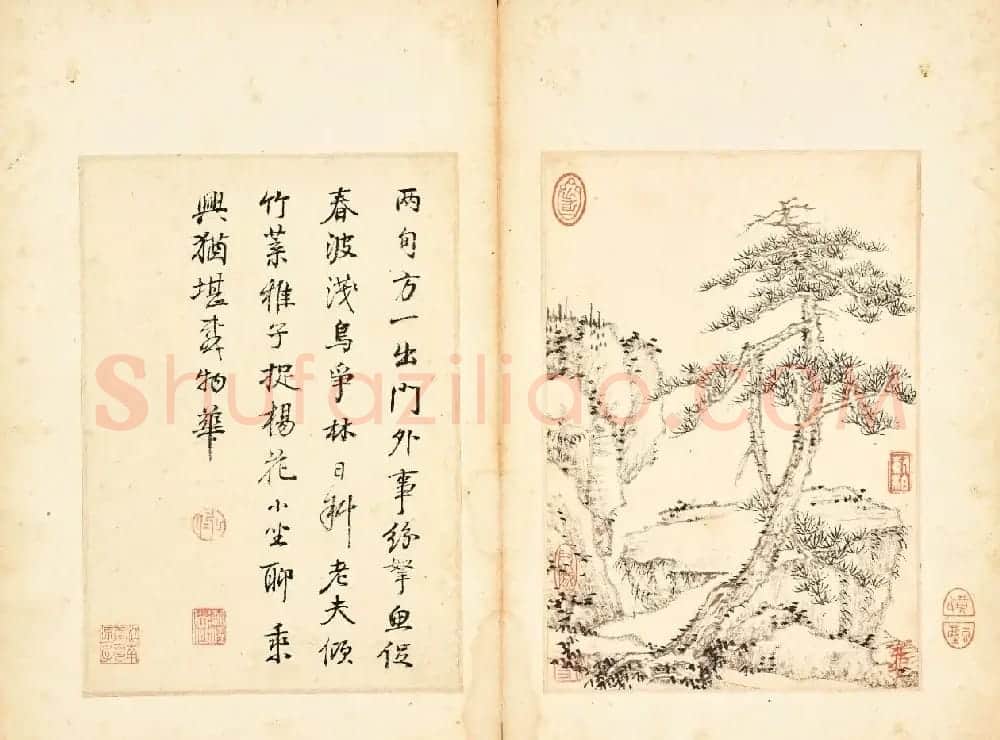 两旬方一出門外事紛拏魚促
春波淺鳥爭林日斜老夫傾
竹葉稚子捉楊花小坐聊乘
興猶堪物華
Shufaziliao.COM